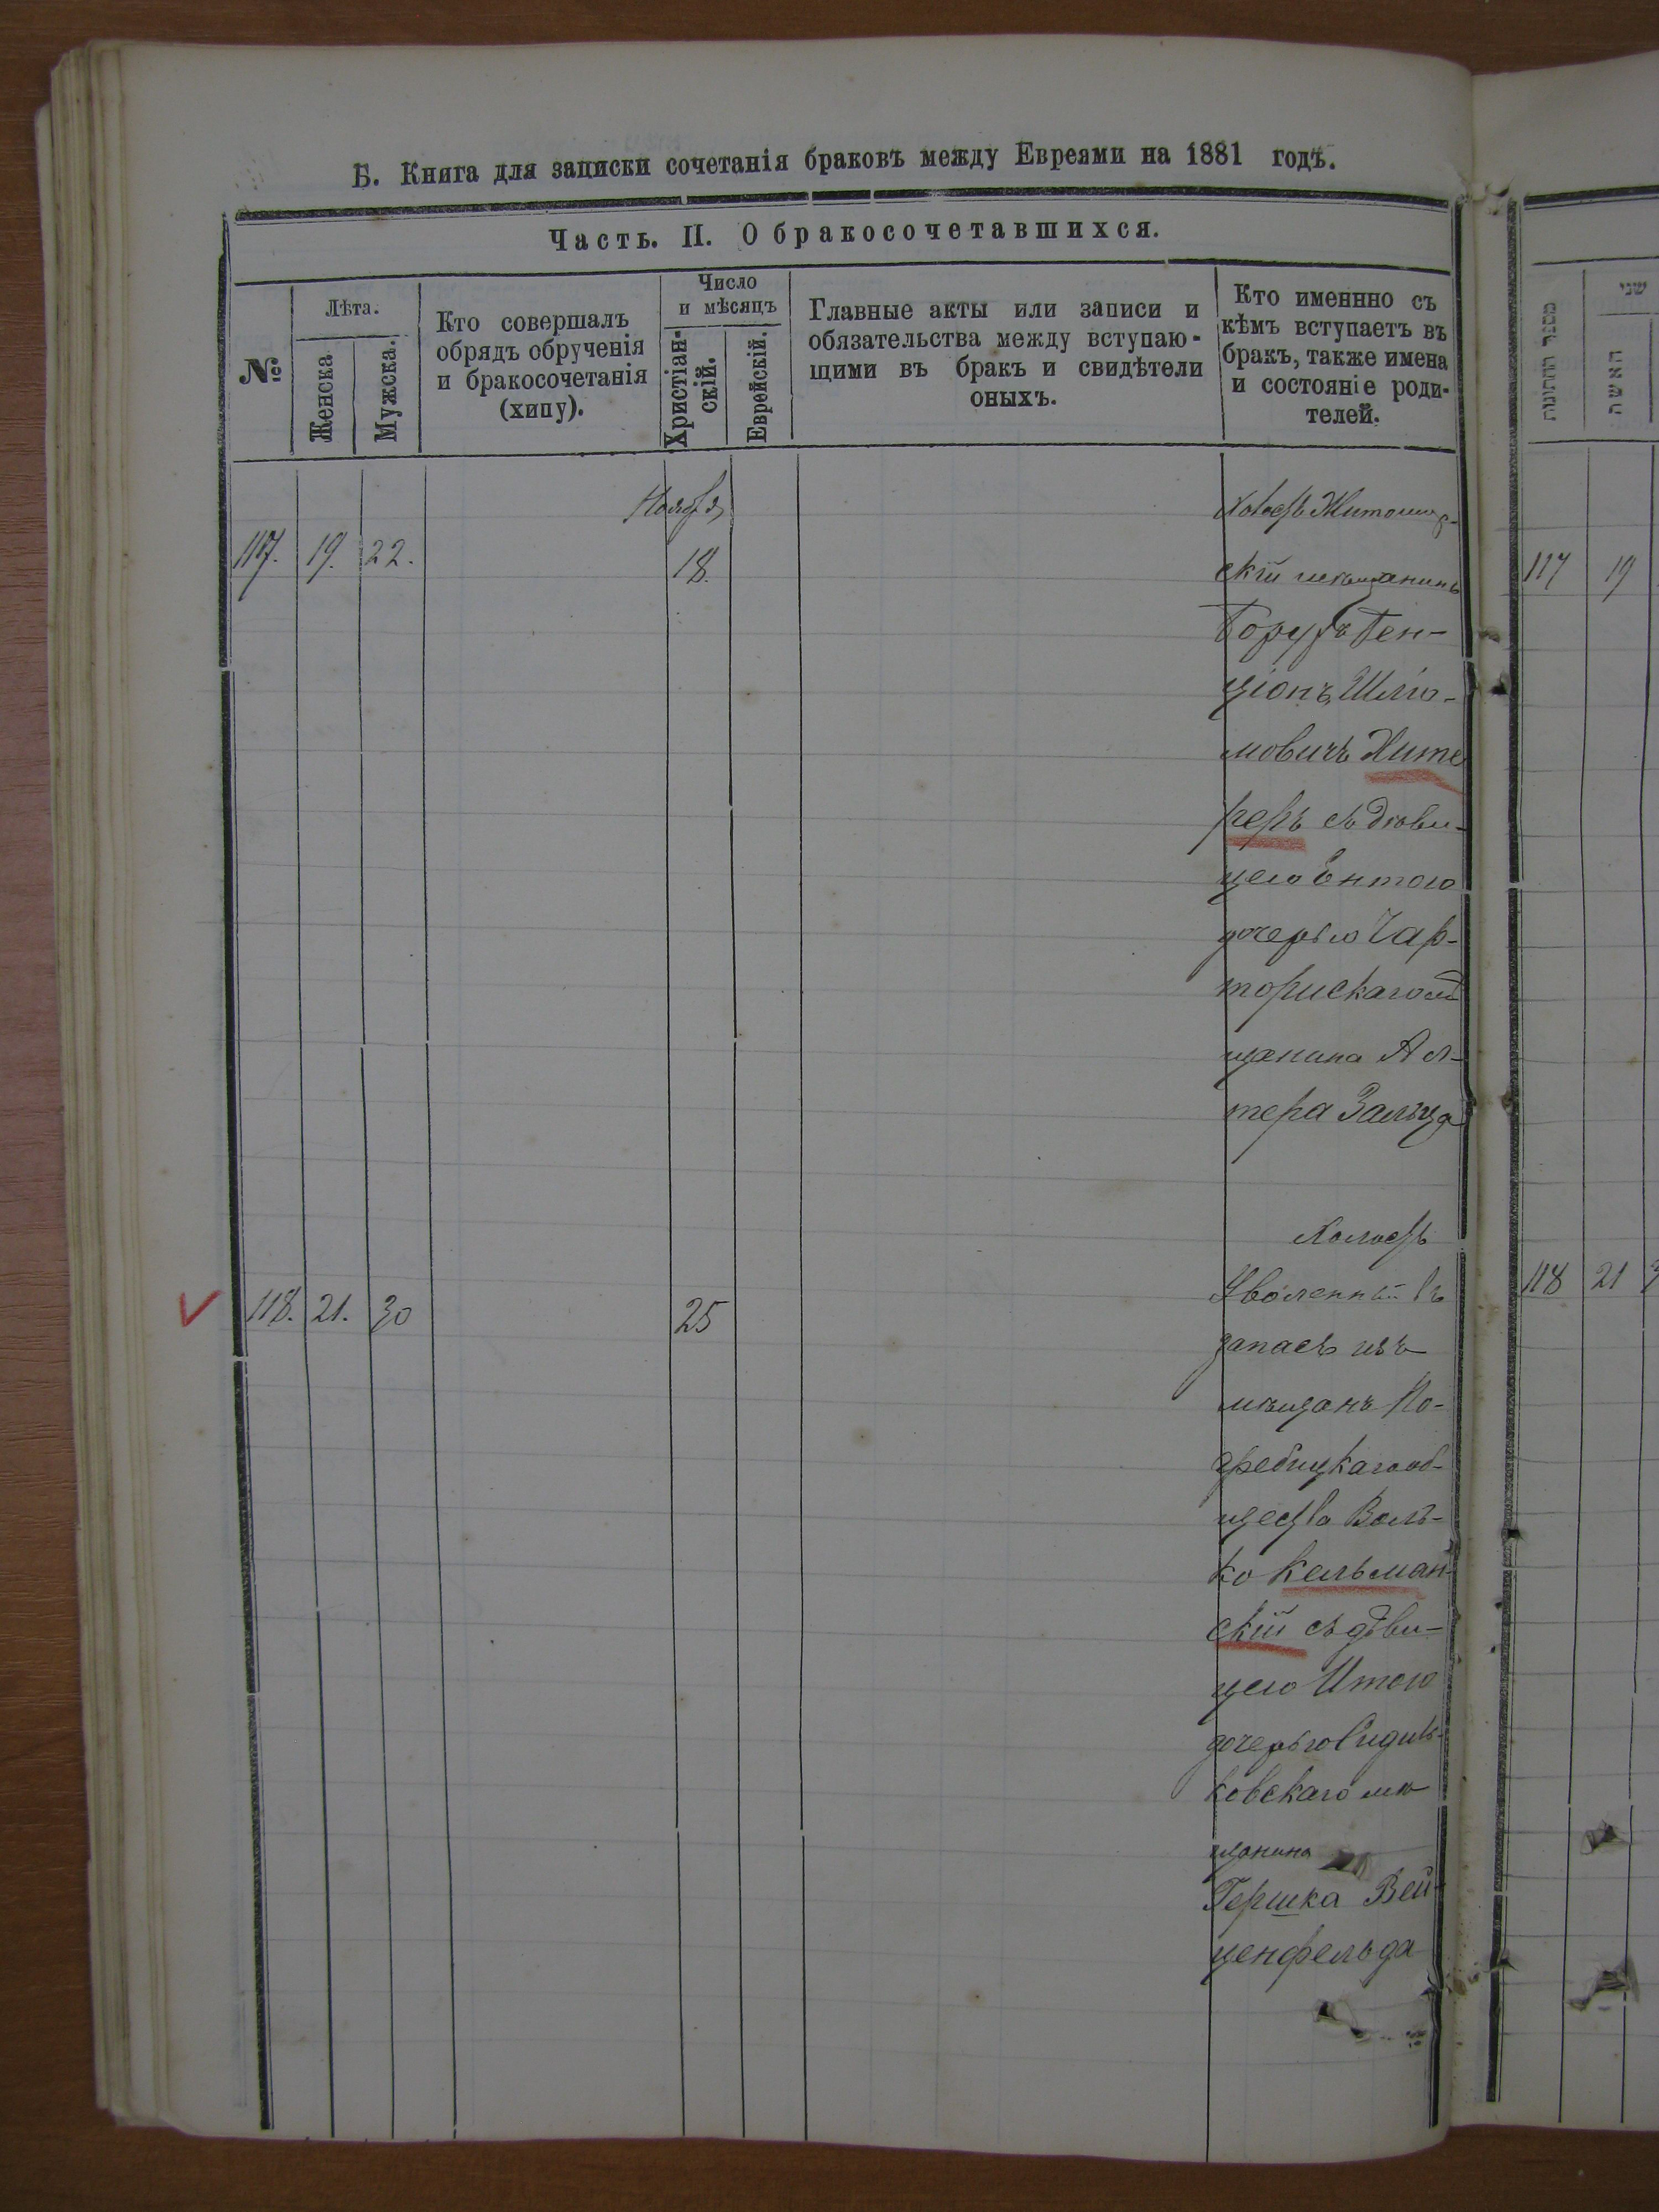 Б. Книга для записки сочетанія браковъ между Евреями на 1881 годъ.
Часть. II. О бракосочетавшихся.
№
Лѣта.
Женска
Мужска.
Кто совершалъ
обрядъ обрученія
и бракосочетанія
(хипу).
Число
и мѣсяцъ
Христіан-
скій.
Еврейскій.
Главные акты или записи и
обязательства между вступаю-
щими въ бракъ и свидѣтели
оныхъ.
Кто именнно съ
кѣмъ вступаетъ въ
бракъ, также имена
и состояніе роди-
телей.
Ноября
117. 19. 22. 18.
Холостъ Житомир-
скій мѣщанинъ
Борухъ Бен-
ціонъ Шліо-
мовичъ
съ дѣви-
цею Ентою
дочерью Чар-
торискаго мѣ
щанина Ал-
тера Зальца
Холостъ
118. 21. 30 25
Уволенный въ
запасъ изъ
мѣщанъ По-
гребищкаго об-
щества Воль-
ко Кельман-
скій съ дѣви-
цею Итою
дочерью Судил-
ковскаго мѣ
щанина
Гершка Вей-
ценфельда
מספר החתונות
שני
האשה
117 19
118 21